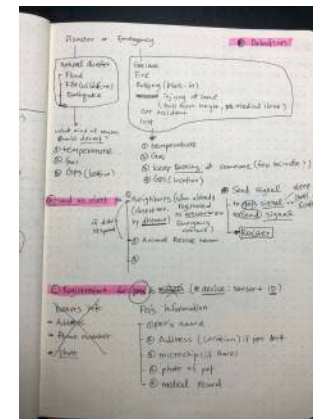 Disaster or Emergency
Ⓑ Detection
Natural disaster
- Flood
- Fire (wildfire)
- Earthquake
Gas leak
Fire
Robbing (break-in)
injury at home
car accident
lost
what kind of sensor
① temperature
② Gas
③ GPS (location)
① temperature
② Gas
③ keep barking at someone (few minutes)
④ GPS (location)
① Neighbours (who already registered
(closest one
by distance)
Emergency contact)
if didn't
respond
② Animal Rescue team
③
Send signal
to send signal
Register
Ⓒ Registration for pets
(* device : sensor + ID)
Owners info
- Address
- Phone number
Pet's information
- ① pet's name
- ② Address (location) if pet lost
- ③ microchips (if have)
- ④ photo of pet
- ⑤ medical record